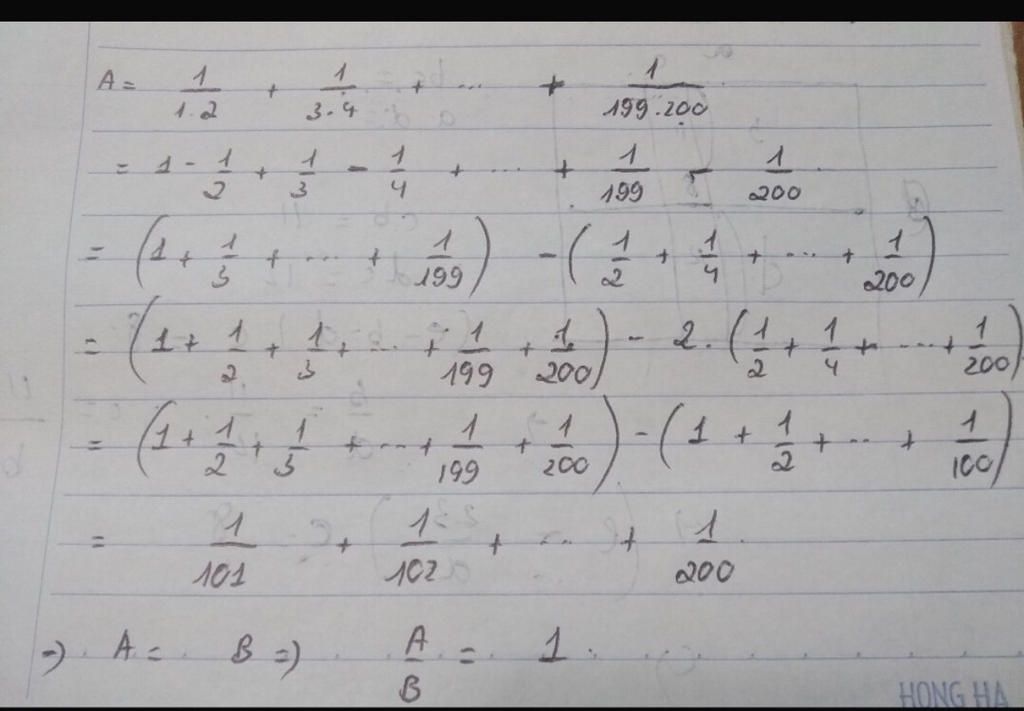 A = 1/1.2 + 1/3.4 + ... + 1/199.200
= 1 - 1/2 + 1/3 - 1/4 + ... + 1/199 - 1/200
= (1 + 1/3 + ... + 1/199) - (1/2 + 1/4 + ... + 1/200)
= (1 + 1/2 + 1/3 + ... + 1/199 + 1/200) - 2.(1/2 + 1/4 + ... + 1/200)
= (1 + 1/2 + 1/3 + ... + 1/199 + 1/200) - (1 + 1/2 + ... + 1/100)
= 1/101 + 1/102 + ... + 1/200
=) A = B =) A/B = 1
HONG HA